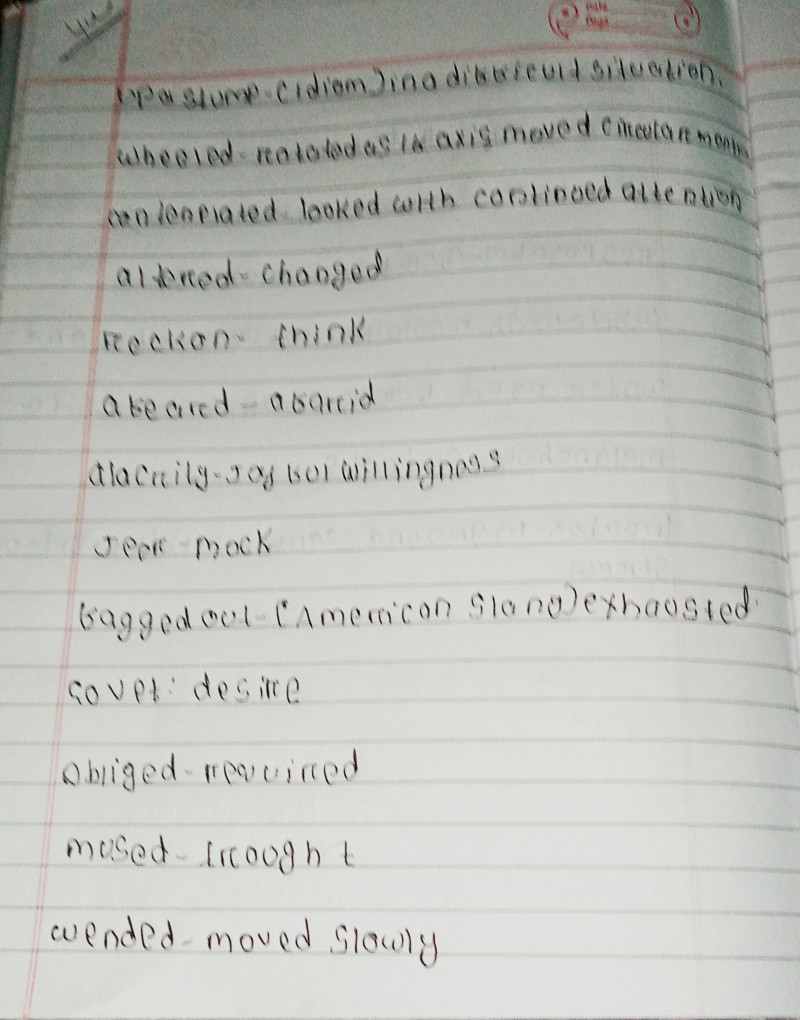 Date
Page
44
Up a stump - (idiom) in a difficult situation.
wheeled - rotated as in axis moved circular
contemplated - looked with continued attention
altered - changed
reckon - think
afeared - afraid
alacrity - joyful willingness
Jeer - mock
fagged out - (American slang) exhausted
covet : desire
obliged - required
mused - trought
wended - moved slowly